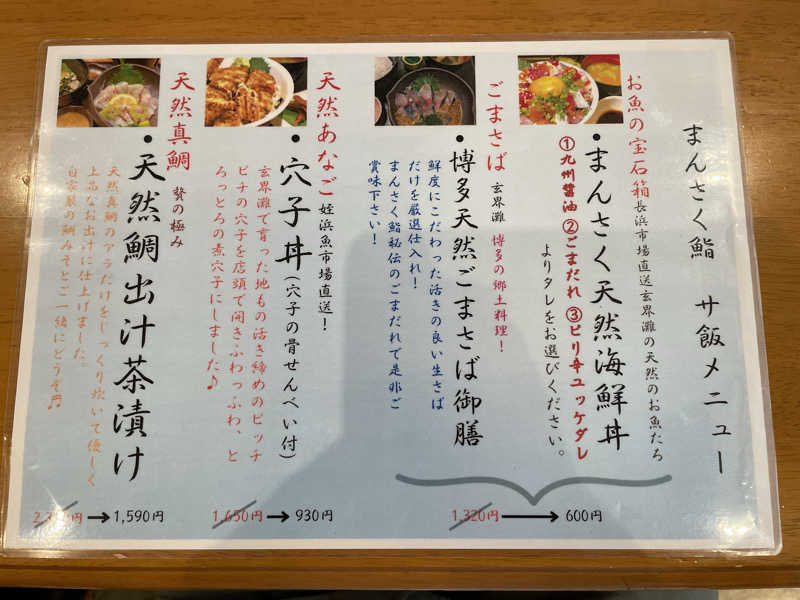 まんさく鮨 サ飯メニュー
お魚の宝石箱 長浜市場直送玄界灘の天然のお魚たち
・まんさく天然海鮮丼
①九州醤油②ごまだれ③ピリ辛ユッケダレ
よりタレをお選びください。
ごまさば 玄界灘 博多の郷土料理!
・博多天然ごまさば御膳
鮮度にこだわった活きの良い生さば
だけを厳選仕入れ!
まんさく鮨秘伝のごまだれで是非ご
賞味下さい!
1,320円→600円
天然あなご 姪浜魚市場直送!
・穴子丼(穴子の骨せんべい付)
玄界灘で育った地もの活き締めのピッチ
ピチの穴子を店頭で開きふわっふわ、と
ろっとろの煮穴子にしました♪
1,650円→930円
天然真鯛 贅の極み
・天然鯛出汁茶漬け
天然真鯛のアラだけをじっくり炊いて優しく
上品なお出汁に仕上げました。
自家製の鯛みそとご一緒にどうぞ♬
→1,590円